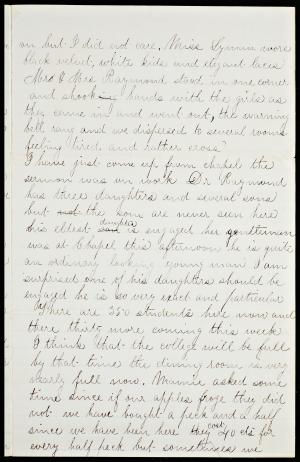 on but I did not care, Miss Lyman wore
black velvet, white kids and elegant laces
Mr & Mrs Raymond stood in one corner
and shooking hands with the girls as
they came in and went out, the warning
bell rang and we dispersed to several rooms
feeling tired and rather cross
I have just come up from chapel the
sermon was on work Dr Raymond
has three daughters and several sons
but not the sons are never seen here
daughter
his ellest son is engaged her gentleman
was at Chapel this afternoon he is quite
an ordinary looking young man I am
surprised one of his daughters should be
engaged he is so very exact and particular
There are 350 students here now and
there thirty more coming this week
I think that the college will be full
by that time the dining room is very
nearly full now. Mamie asked some
time since if our apples froze they did
not we have bought a peck and a half
cost
since we have been here they 40 cts for
every half peck but sometimes we